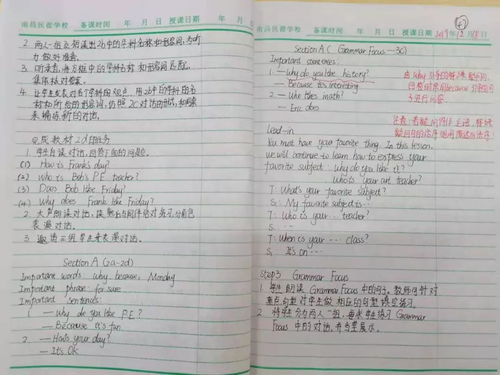 南昌民德学校 备课时间 年 月 日 授课日期 年 月 日
2. 两人一组
力做好准备.
3. 听录音,将方框中的学科名称和形容词匹配,
集体核对答案.
4. 让学生发表对各个学科的观点,用2a中的学科的名
称和所给的形容词,仿照2C对话的形式,和同桌
来编造新的对话.
完成教材2d的任务
1. 学生自读对话,回答下面的问题.
(1) How is Frank's day?
(2) Who is Bob's P.E. teacher?
(3) Does Bob like Friday?
(4) Why does Frank like Friday?
2. 大声朗读对话,
表演对话.
3. 邀请三组学生来表演对话.
Section A (2a-2d)
Important words why because, Monday
Important phrase for sure
Important sentences
1. — Why do you like P.E.?
— Because it's fun.
2. — How's your day?
— It's OK
南昌民德学校 备课时间 年 月 日 授课日期 2019年12月
Section A ( Grammar Focus — 3C)
Important sentences
1. — Why do you like history?
— Because it's interesting.
2. — Who likes math?
— Eric does
由why引导的特殊疑问句,
回答时常用because引导的句
子进行回答.
注意:若疑问词作主语,特殊
疑问句的语序要用陈述句语序
Lead-in
You must have your favorite thing. In this lesson,
we will continue to learn how to express your
favorite subject. Why do you like it?
Who is your art teacher?
T: What's your favorite subject?
S: My favorite subject is ...
T: Who is your ...
S: ...
T: When is your ... class?
S: It's on ...
Step 3 Grammar Focus
1. 学生朗读 Grammar Focus 中的句子. 教师可针对
重点句型对学生做相应的句型操练练习.
2. 将学生分为两人一组,要求学生练习 Grammar
Focus 中的对话,并当堂展示.